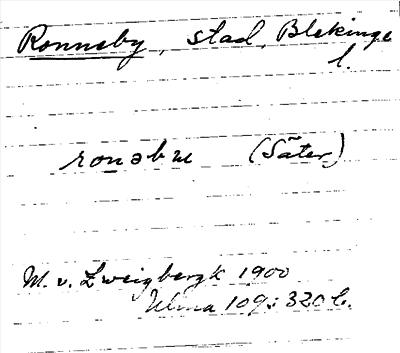 Ronneby, stad, Blekinge
l.
ronəbɯ (Säter)
M. v. Zweigbergk 1900
Ulma 109:320 b.